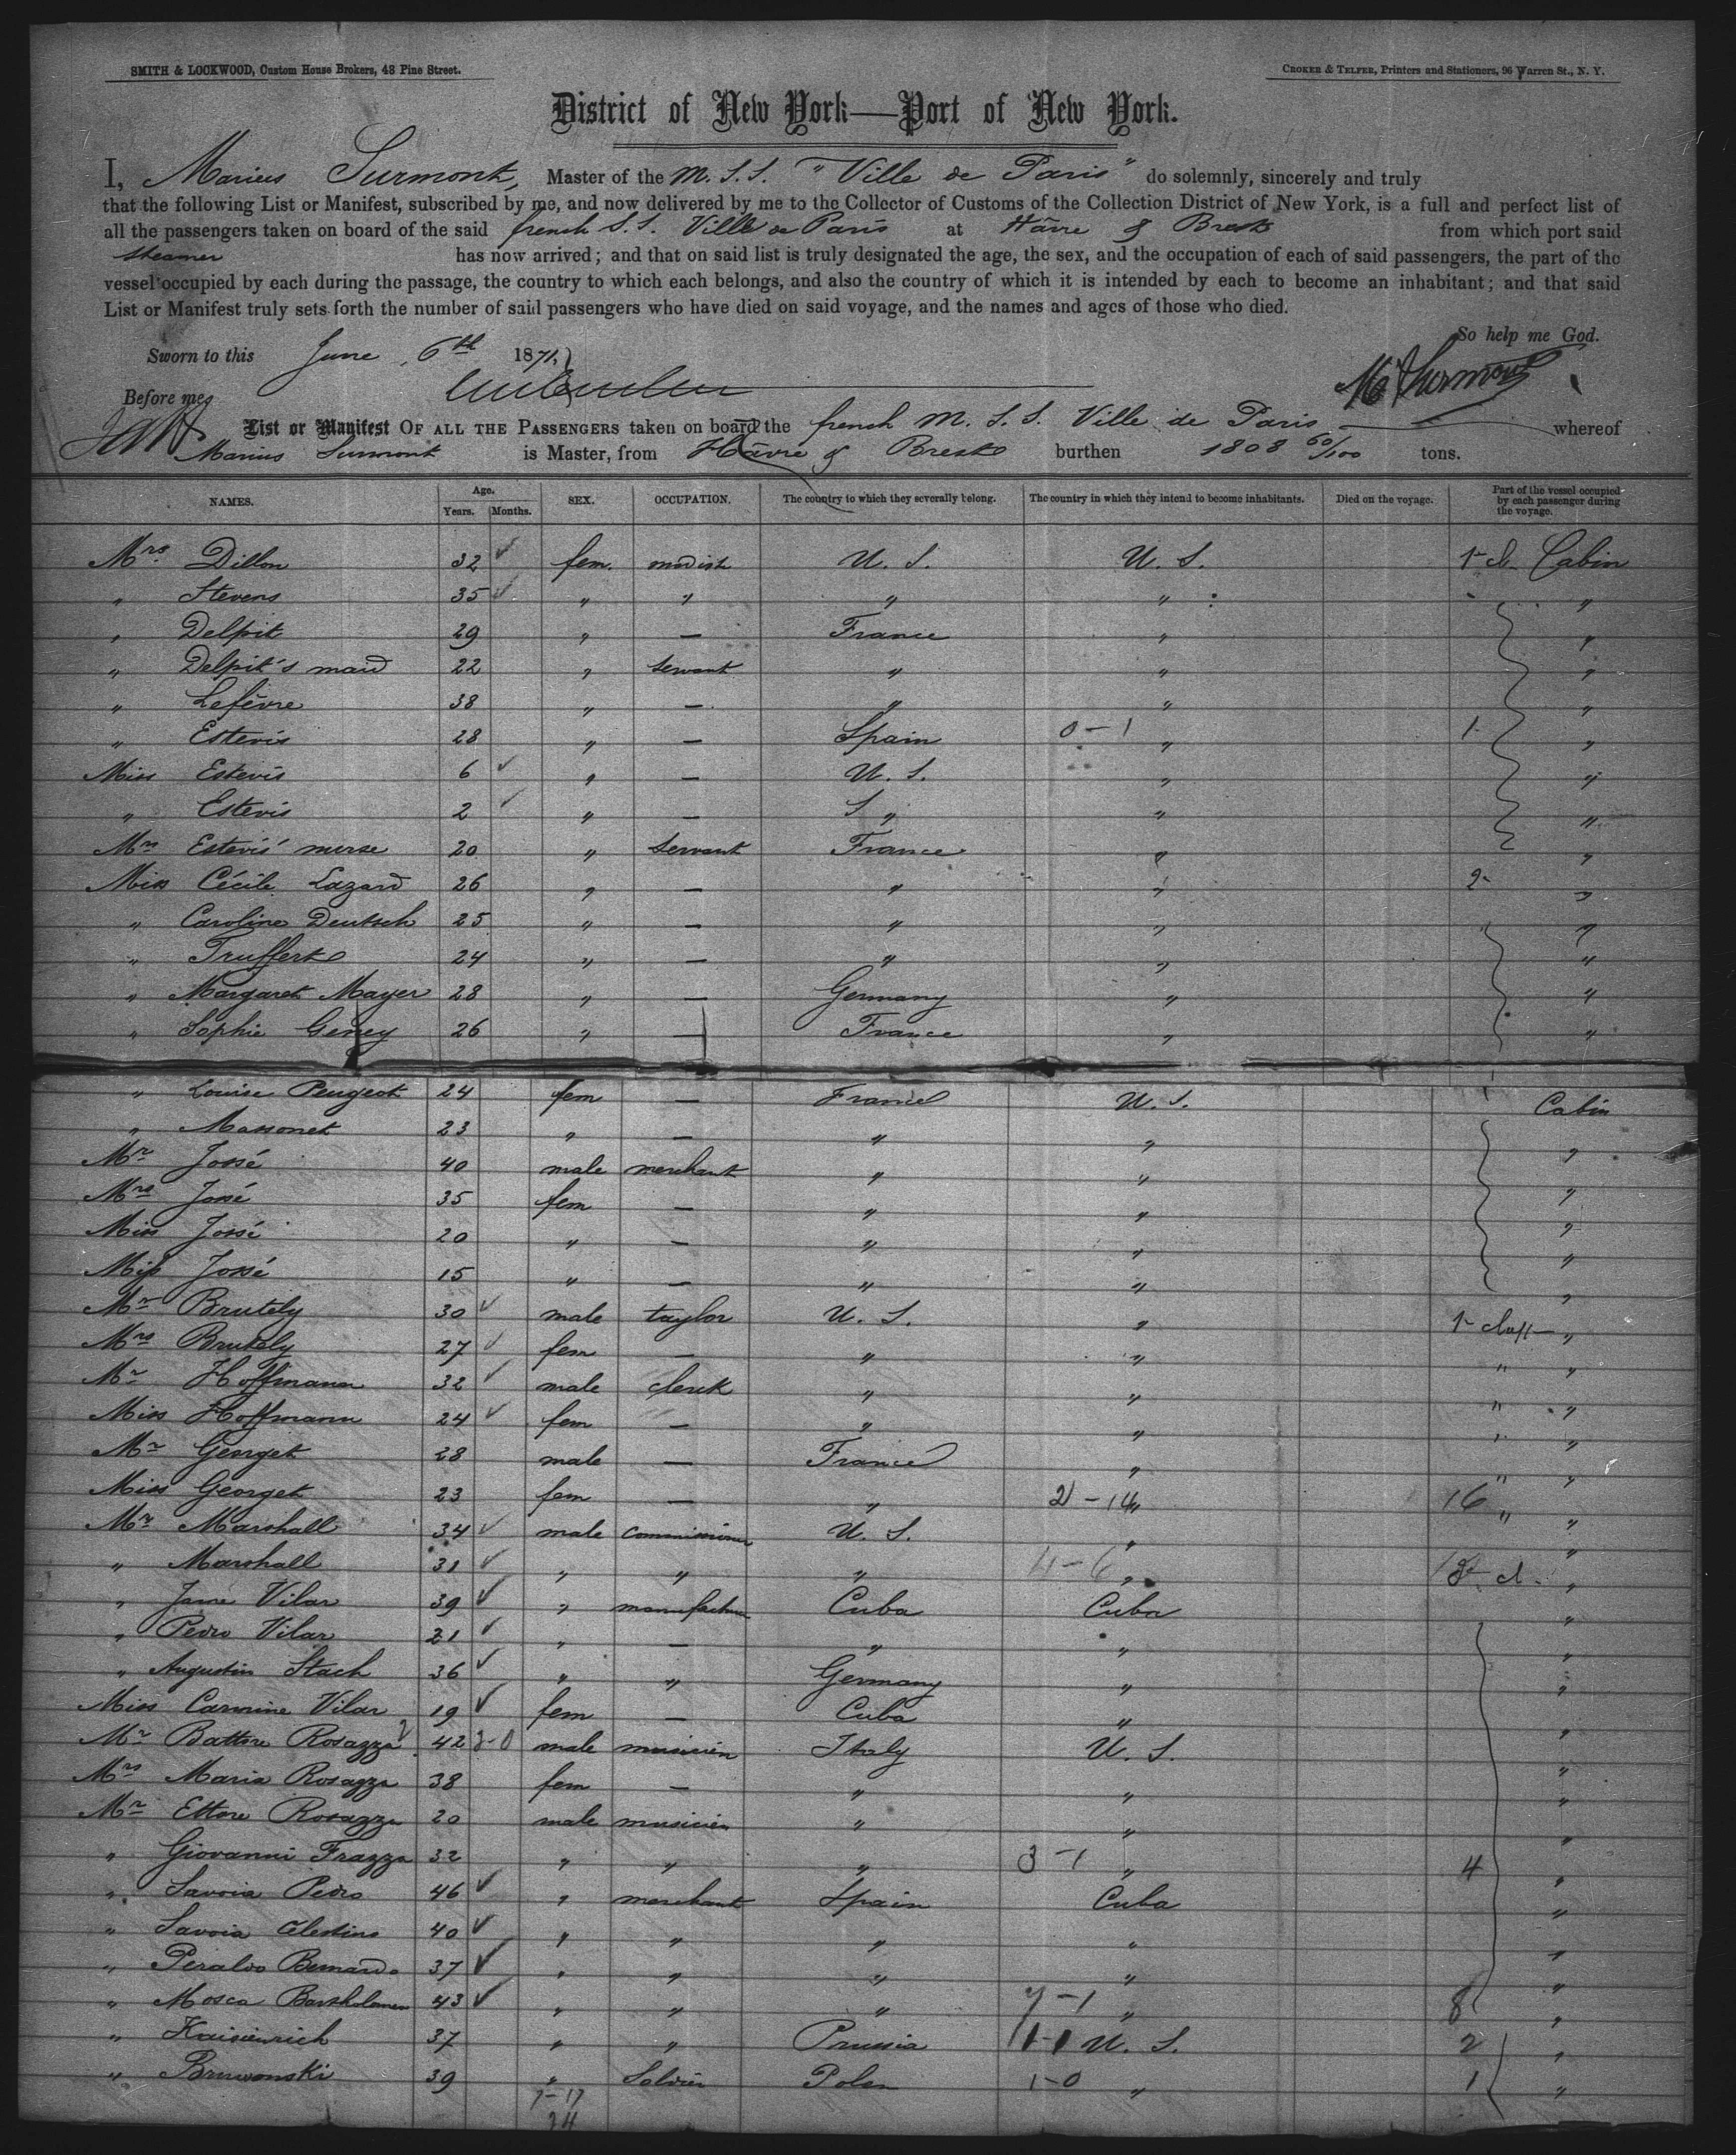 SMITH & LOCKWOOD, Custom House Brokers, 48 Pine Street.
CROKER & TELFER, Printers and Stationers, 96 Warren St., N. Y.
District of New York—Port of New York.
I, Marius Surmont, Master of the M. S. S. "Ville de Paris" do solemnly, sincerely and truly
that the following List or Manifest, subscribed by me, and now delivered by me to the Collector of Customs of the Collection District of New York, is a full and perfect list of
all the passengers taken on board of the said french S. S. Ville de Paris at Hâvre & Brest from which port said
steamer has now arrived; and that on said list is truly designated the age, the sex, and the occupation of each of said passengers, the part of the
vessel occupied by each during the passage, the country to which each belongs, and also the country of which it is intended by each to become an inhabitant; and that said
List or Manifest truly sets forth the number of said passengers who have died on said voyage, and the names and ages of those who died.
So help me God.
Sworn to this June 6th 1871,
Before me,
M Surmont
List or Manifest OF ALL THE PASSENGERS taken on board the french M. S. S. Ville de Paris whereof
Marius Surmont is Master, from Hâvre & Brest burthen 1808 60/100 tons.
NAMES. Age. Years. Months. SEX. OCCUPATION. The country to which they severally belong. The country in which they intend to become inhabitants. Died on the voyage. Part of the vessel occupied by each passenger during the voyage.
Mrs Dillon 32 fem. modist U. S. U. S. 1- cl- Cabin
" Stevens 35 " " " " "
" Delpit 29 " — France " "
" Delpit's maid 22 " servant " " "
" Lefèvre 38 " — " " "
" Estevis 28 " — Spain 0-1 " 1- "
Miss Estevis 6 " — U. S. " "
" Estevis 2 " — S " " "
Mrs Estevis' nurse 20 " servant France " "
Miss Cécile Lazard 26 " — " " 2- "
" Caroline Deutsch 25 " — " " "
" Truffert 24 " — " " "
" Margaret Mayer 28 " — Germany " "
" Sophie Geney 26 " — France " "
" Louise Peugeot 24 fem — France U. S. Cabin
" Massonet 23 " — " " "
Mr Jossé 40 male merchant " " "
Mrs Jossé 35 fem — " " "
Miss Jossé 20 " — " " "
Miss Jossé 15 " — " " "
Mr Brutély 30 male taylor U. S. " 1- class- "
Mrs Brutely 27 fem — " " " "
Mr Hoffmann 32 male clerk " " " "
Miss Hoffmann 24 fem — " " " "
Mr Georget 28 male — France " " "
Miss Georget 23 fem — " 2-14 " 16 " "
Mr Marshall 34 male U. S. " "
" Marshall 31 " " " 4-6 " cl. "
" Vilar 39 " Cuba Cuba "
" Pedro Vilar 21 " — " " "
" Augustin Stach 36 " " Germany " "
Miss Carmine Vilar 19 fem — Cuba " "
Mr Battore Rosazza 42 male musicien Italy U. S. "
Mrs Maria Rosazza 38 fem — " " "
Mr Ettore Rosazza 20 male musicien " " "
" Giovanni Frazza 32 " " " 3-1 " 4 "
" Savoia Pedro 46 " merchant Spain Cuba "
" Savoia Célestino 40 " " " " "
" Peraldo Bernardo 37 " " " " "
" Mosca 43 " " " 7-1 " 8 "
" Kaisienrich 37 " " Prussia 1-1 U. S. 2 "
" Bruwonski 39 " Polen 1-0 " 1 "
7-17
24